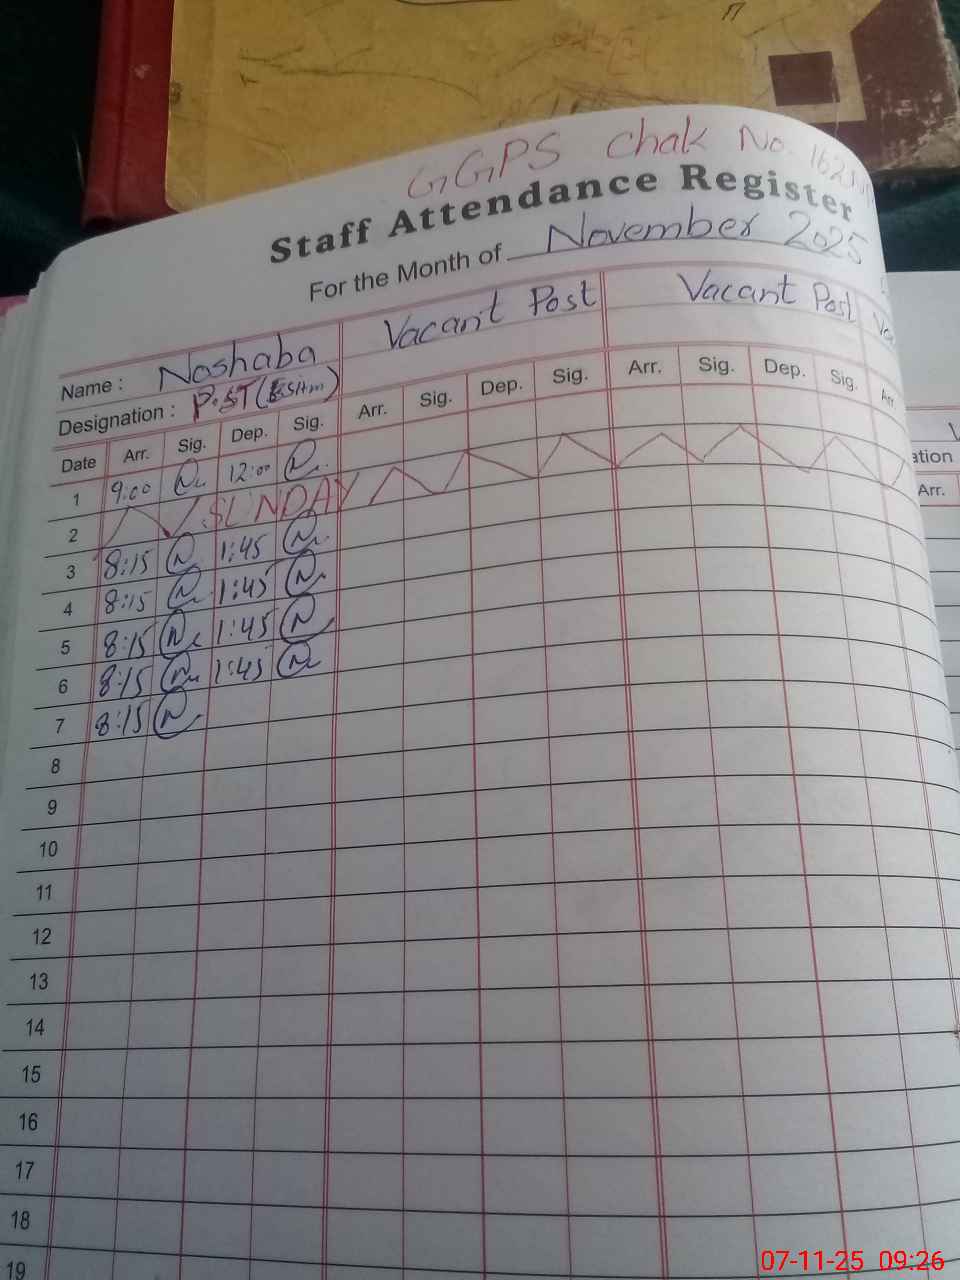 GGPS Chak No. 162
Staff Attendance Register
For the Month of November 2025
Name : Noshaba Vacant Post Vacant Post Va
Designation : P.ST
Date Arr. Sig. Dep. Sig. Arr. Sig. Dep. Sig. Arr. Sig. Dep. Sig. Arr.
1 9:00 12:00
2 SUNDAY
3 8:15 1:45
4 8:15 1:45
5 8:15 1:45
6 8:15 1:45
7 8:15
8
9
10
11
12
13
14
15
16
17
18
19
ation
Arr.
07-11-25 09:26